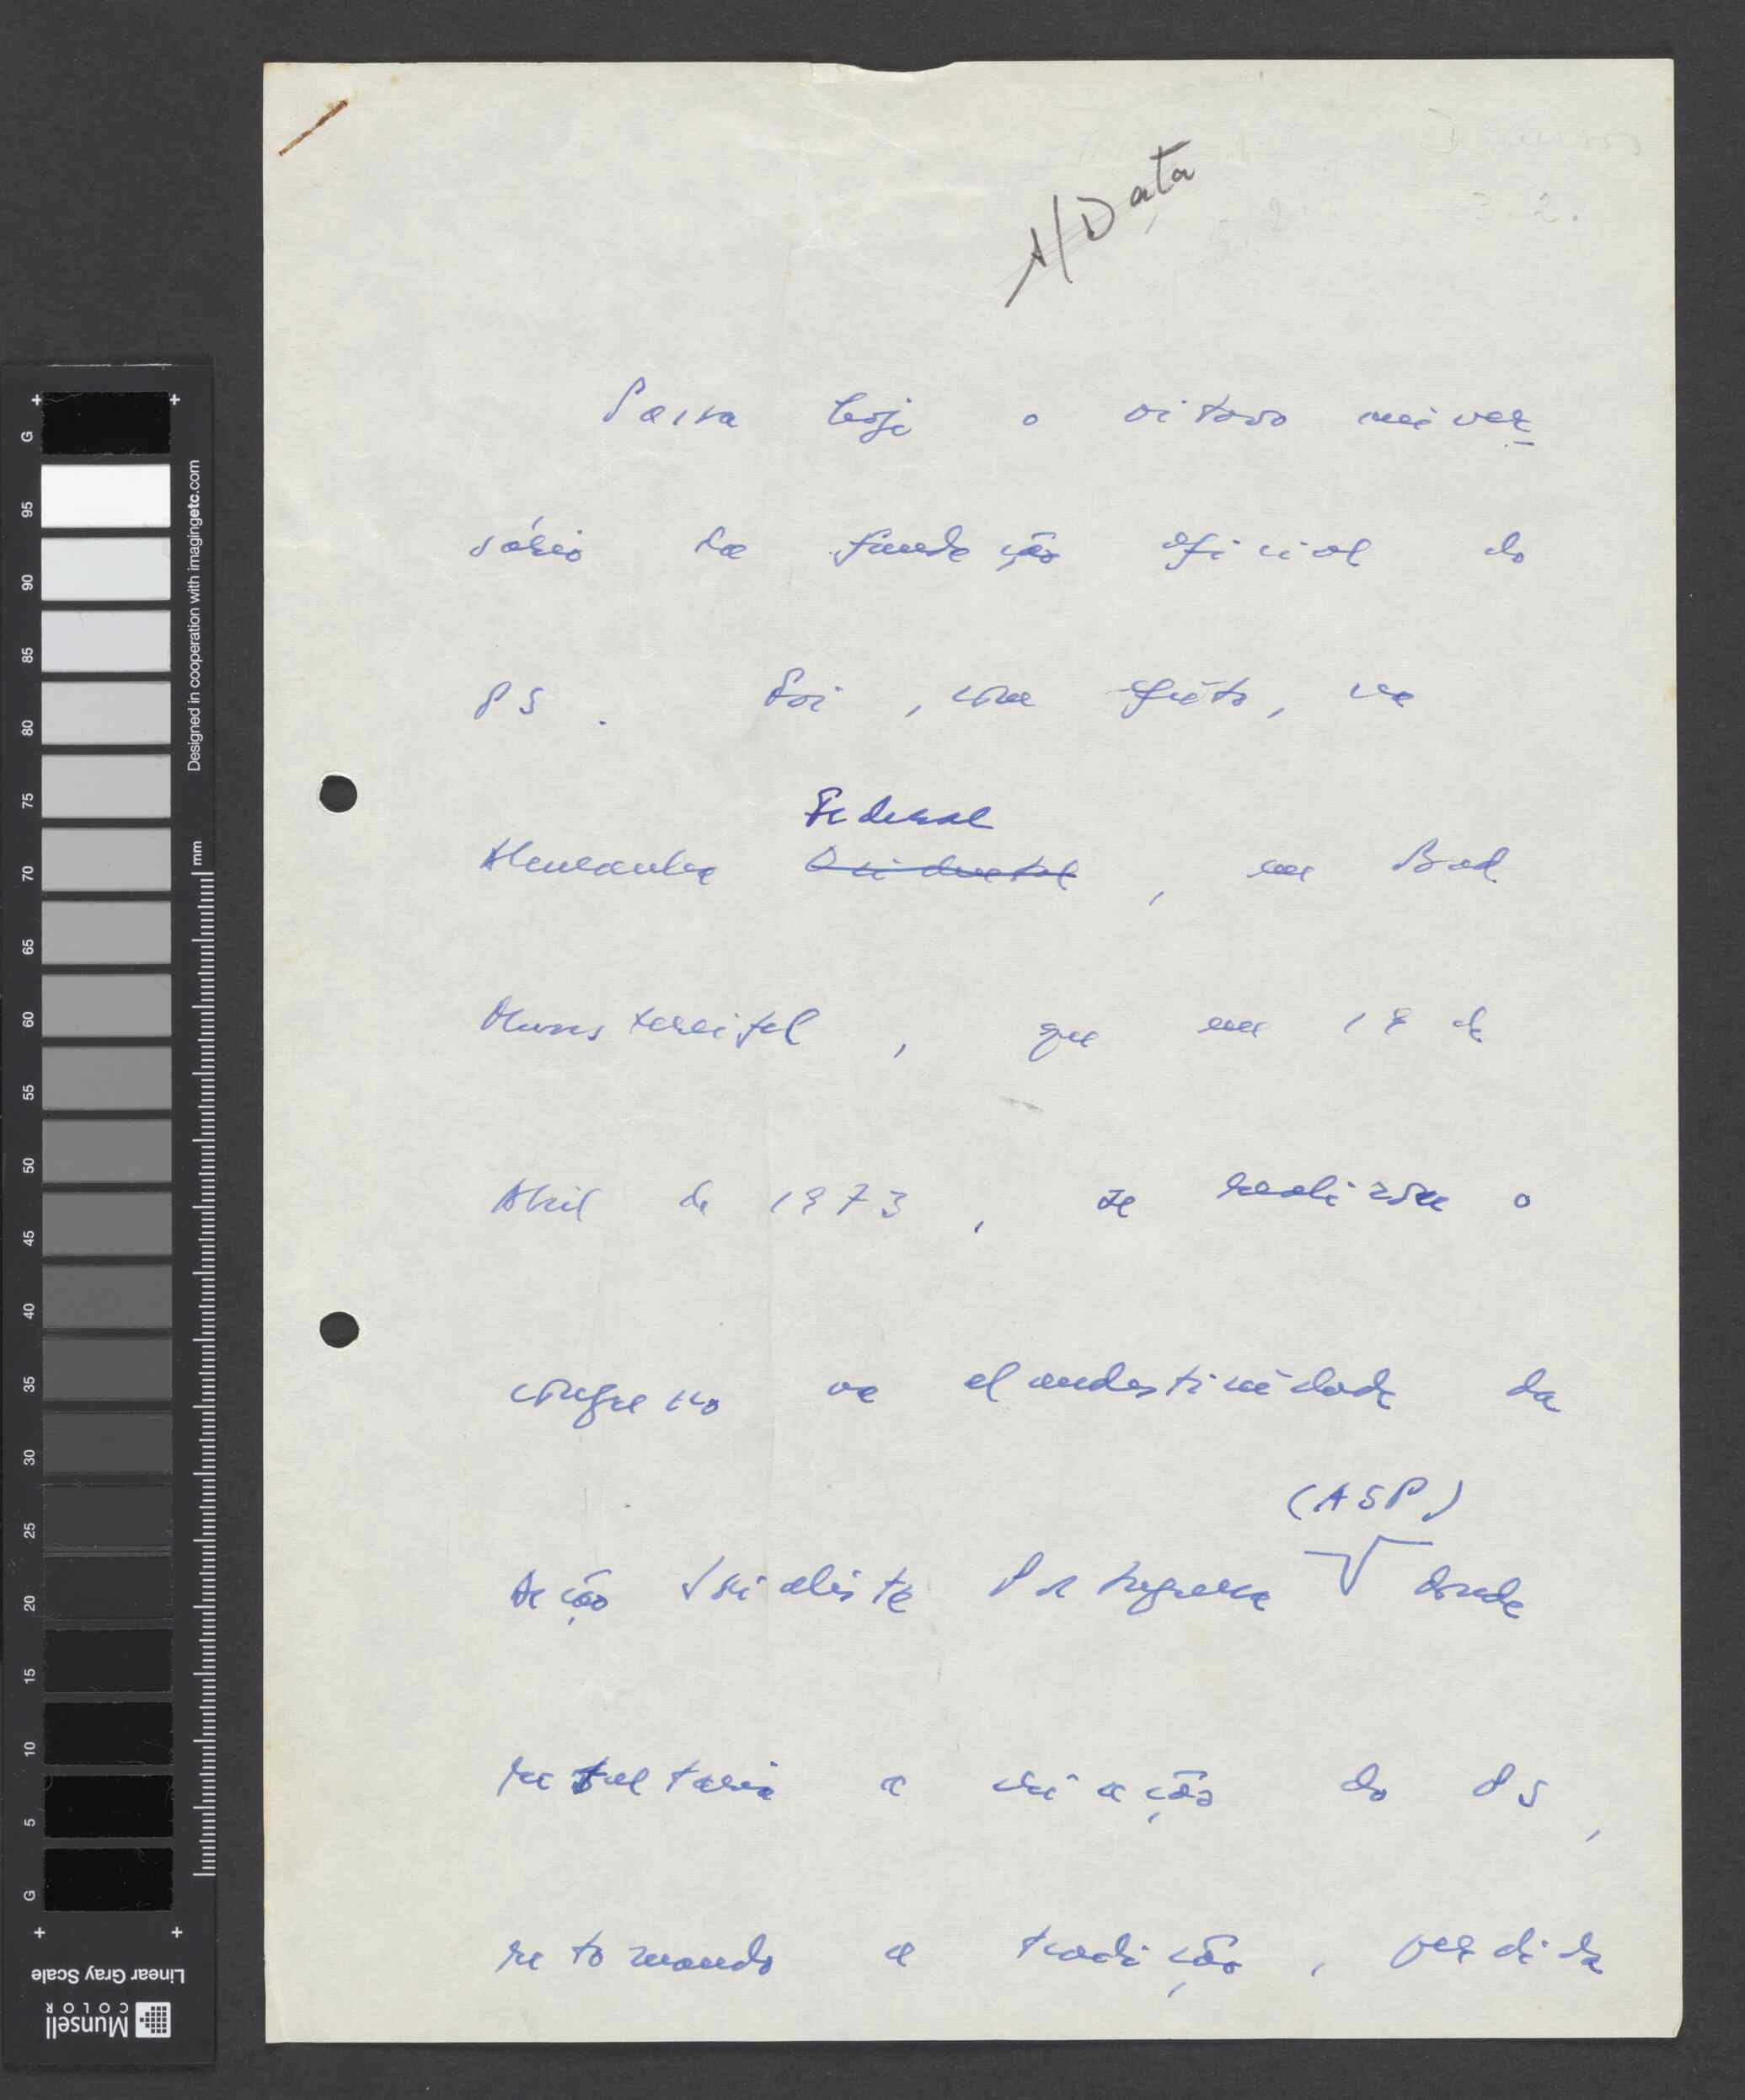 S/Data
Passa hoje o oitavo aniver
sário da fundação oficial do
PS. Foi, com efeito, na
Federal
Alemanha Ocidental, em Bad
Munstereifel, que em 19 de
Abril de 1973, se realizou o
congresso na clandestinidade da
(ASP)
Acção Socialista Portuguesa donde
resultaria a criação do PS,
retomando a tradição, perdida
G
95
90
85
80
75
70
65
60
55
50
45
40
35
30
25
20
15
10
5
G
mm
Designed in cooperation with imagingetc.com
Linear Gray Scale
Munsell
COLOR